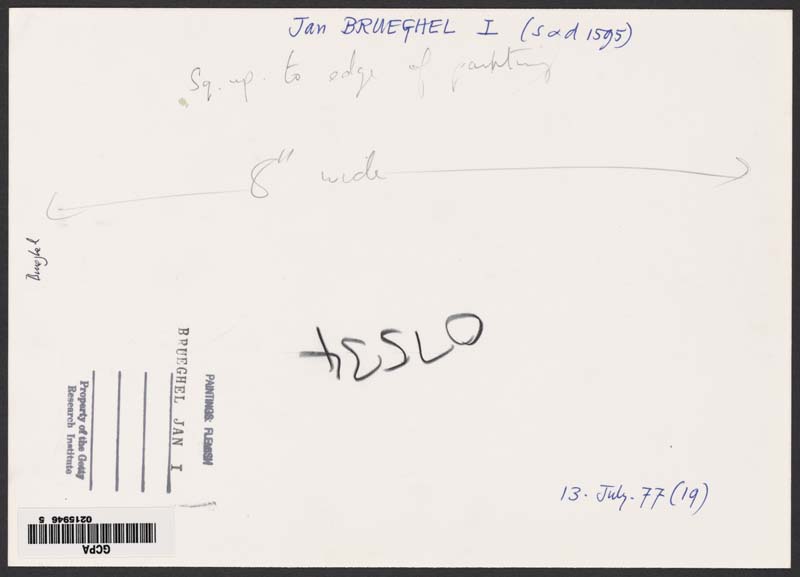 Jan BRUEGHEL I (s & d 1595)
Sq. up. to edge of painting
8" wide
07534
PAINTINGS: FLEMISH
BRUEGHEL JAN I
Property of the Getty
Research Institute
13. July. 77 (19)
GCPA
0215946 5